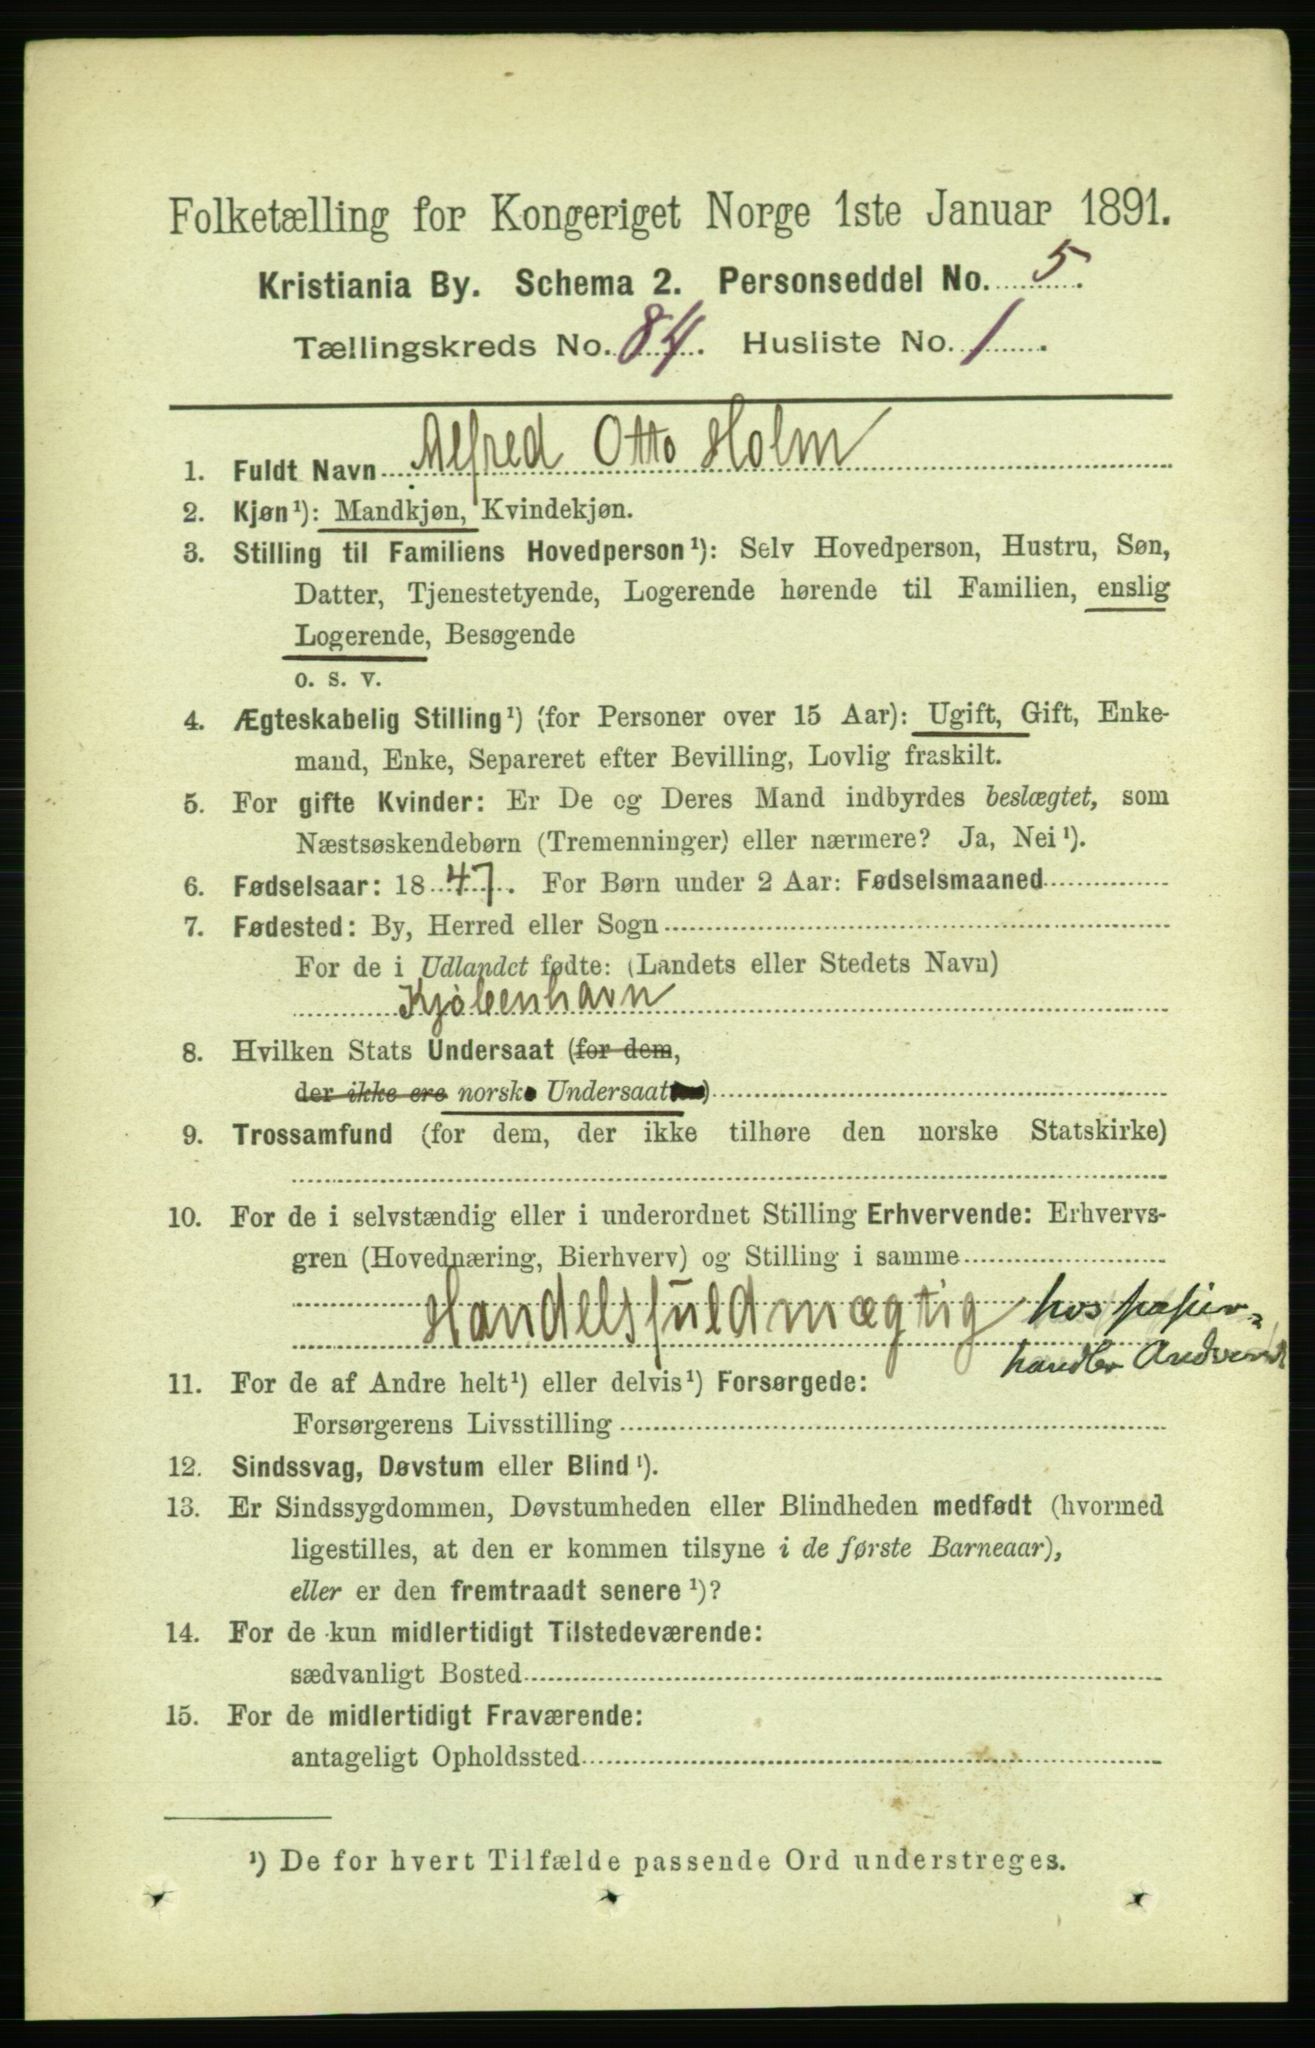 Folketælling for Kongeriget Norge 1ste Januar 1891.
Kristiania By. Schema 2. Personseddel No. 5.
Tællingskreds No. 84. Husliste No. 1.
1. Fuldt Navn Alfred Otto Holm
2. Kjøn¹): Mandkjøn, Kvindekjøn.
3. Stilling til Familiens Hovedperson¹): Selv Hovedperson, Hustru, Søn,
Datter, Tjenestetyende, Logerende hørende til Familien, enslig
Logerende, Besøgende
o. s. v.
4. Ægteskabelig Stilling¹) (for Personer over 15 Aar): Ugift, Gift, Enke-
mand, Enke, Separeret efter Bevilling, Lovlig fraskilt.
5. For gifte Kvinder: Er De og Deres Mand indbyrdes beslægtet, som
Næstsøskendebørn (Tremenninger) eller nærmere? Ja, Nei¹).
6. Fødselsaar: 1847. For Børn under 2 Aar: Fødselsmaaned
7. Fødested: By, Herred eller Sogn
For de i Udlandet fødte: (Landets eller Stedets Navn)
Kjöbenhavn
8. Hvilken Stats Undersaat (for dem,
der ikke ere norske Undersaatter)
9. Trossamfund (for dem, der ikke tilhøre den norske Statskirke)
10. For de i selvstændig eller i underordnet Stilling Erhvervende: Erhvervs-
gren (Hovednæring, Bierhverv) og Stilling i samme
Handelsfuldmægtig hos papir-
handler
11. For de af Andre helt¹) eller delvis¹) Forsørgede:
Forsørgerens Livsstilling
12. Sindssvag, Døvstum eller Blind¹).
13. Er Sindssygdommen, Døvstumheden eller Blindheden medfødt (hvormed
ligestilles, at den er kommen tilsyne i de første Barneaar),
eller er den fremtraadt senere¹)?
14. For de kun midlertidigt Tilstedeværende:
sædvanligt Bosted
15. For de midlertidigt Fraværende:
antageligt Opholdssted
¹) De for hvert Tilfælde passende Ord understreges.